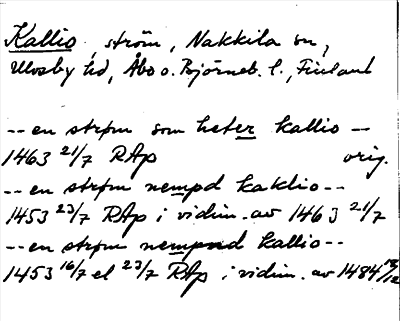 Kallio, ström, Nakkila sn,
Ulvsby hd, Åbo o. Björneb. l., Finland
-- en strøm som heter kallio --
1463 21/7 RAp orig.
-- en strøm nempd kaklio --
1453 23/7 RAp i vidim. av 1463 21/7
-- en strøm nempnd kallio --
1453 16/7 el 23/7 RAp i vidim. av 1484 13/12